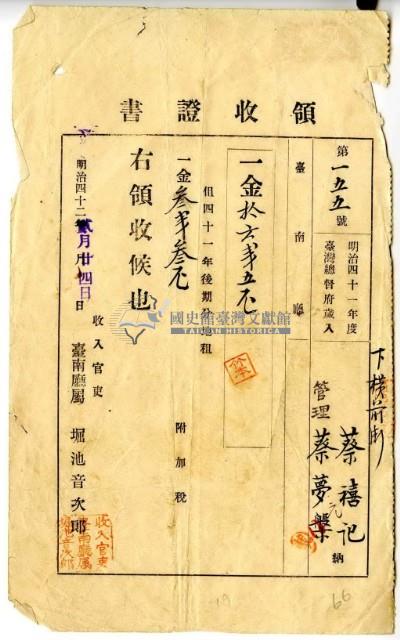 領收證書
第一五五號
明治四十一年度
臺灣總督府歲入
臺南廳
下橫
蔡禧記
管理
蔡夢
納
一金拾六
五
但四十一年後期分地租
一金
附加稅
右領收候也
明治四十二年貳月廿四日
收入官吏
臺南廳屬
堀池音次郎
收入官吏
臺南廳屬
國史館臺灣文獻館
TAIWAN HISTORICA
66